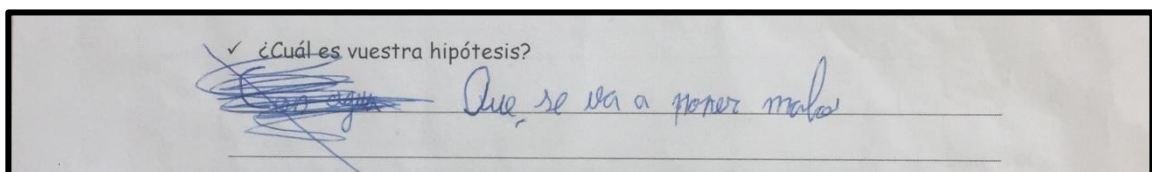 ✓ ¿Cuál es vuestra hipótesis?
Que se va a poner malo